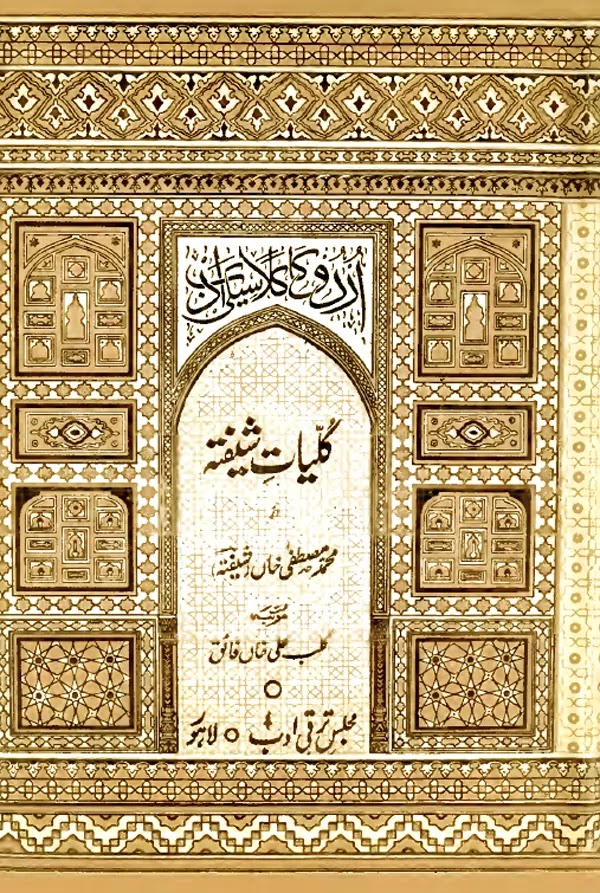 اردو کا کلاسیکی ادب
کلّیاتِ شیفتہ
از
محمد مصطفیٰ خاں (شیفتہ)
مرتبہ
کلب علی خاں فائق
مجلس ترقی ادب ○ لاہور